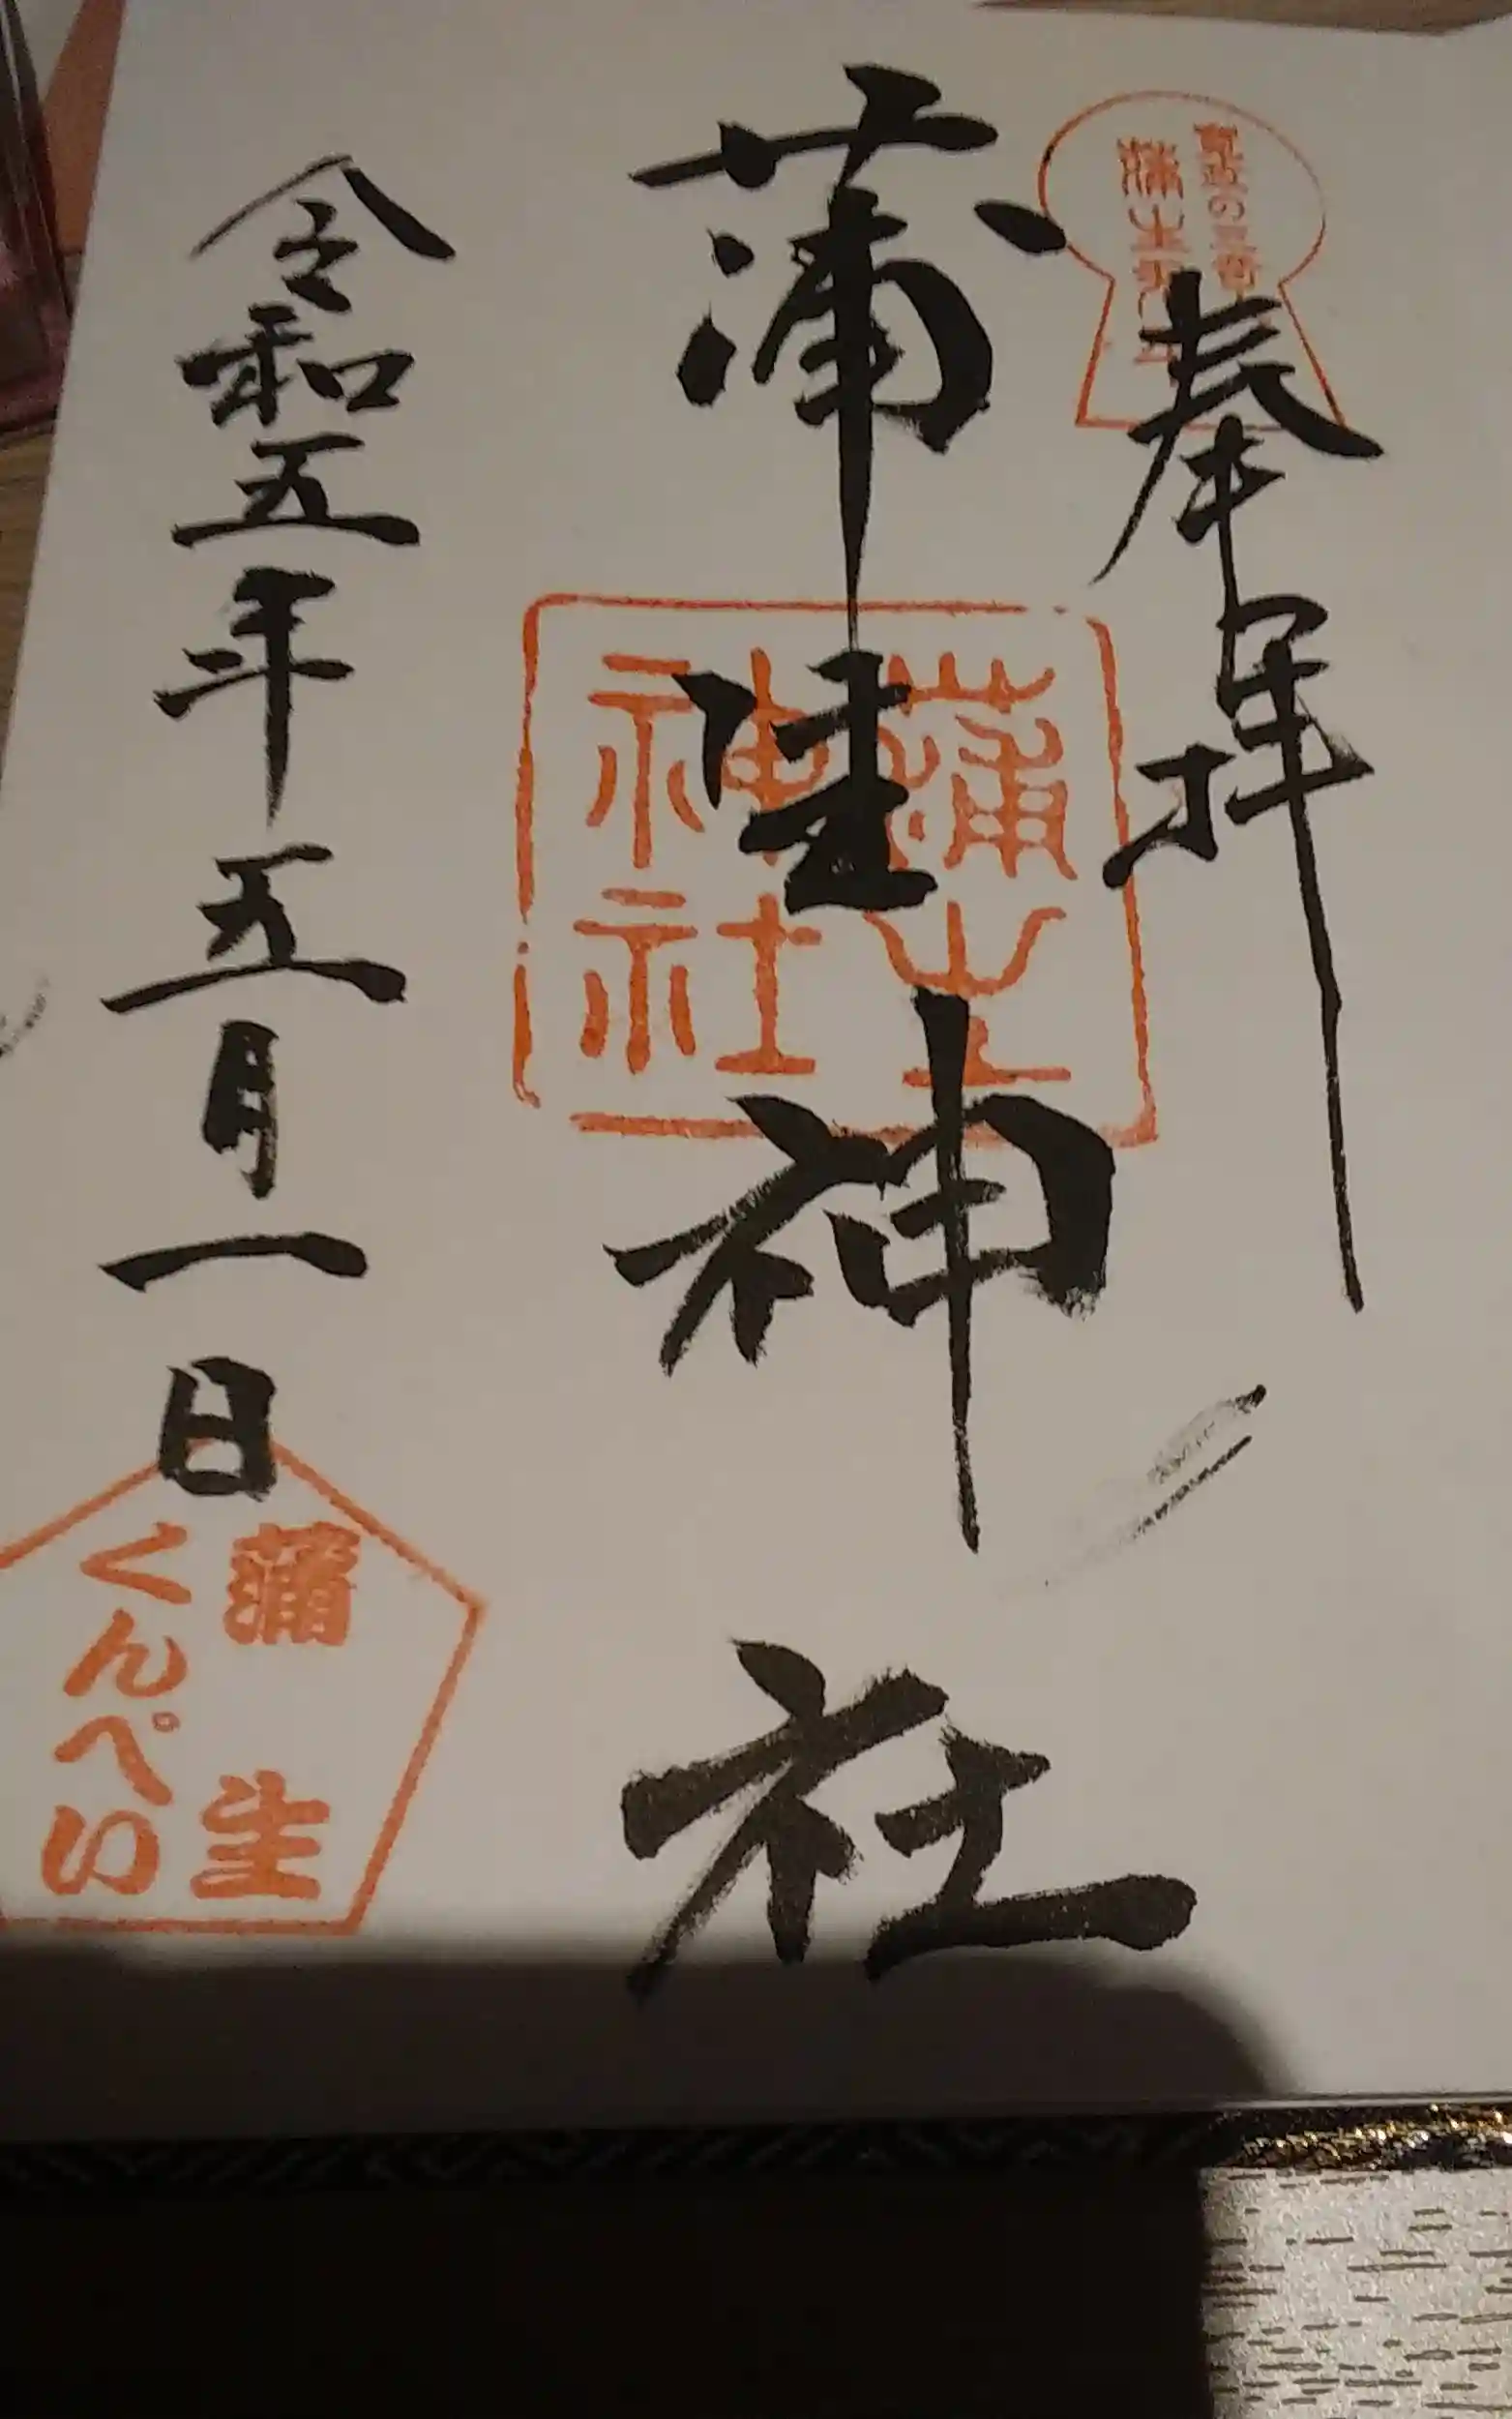 寛政の三奇
蒲生君平
奉拝
蒲生神社
蒲生
神社
令和五年五月一日
蒲生
くんぺい